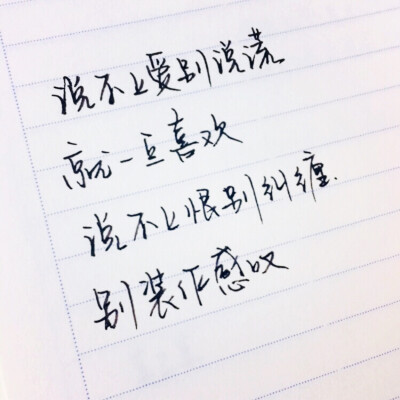 说不上爱别说谎
就一点喜欢
说不上恨别纠缠.
别装作感叹